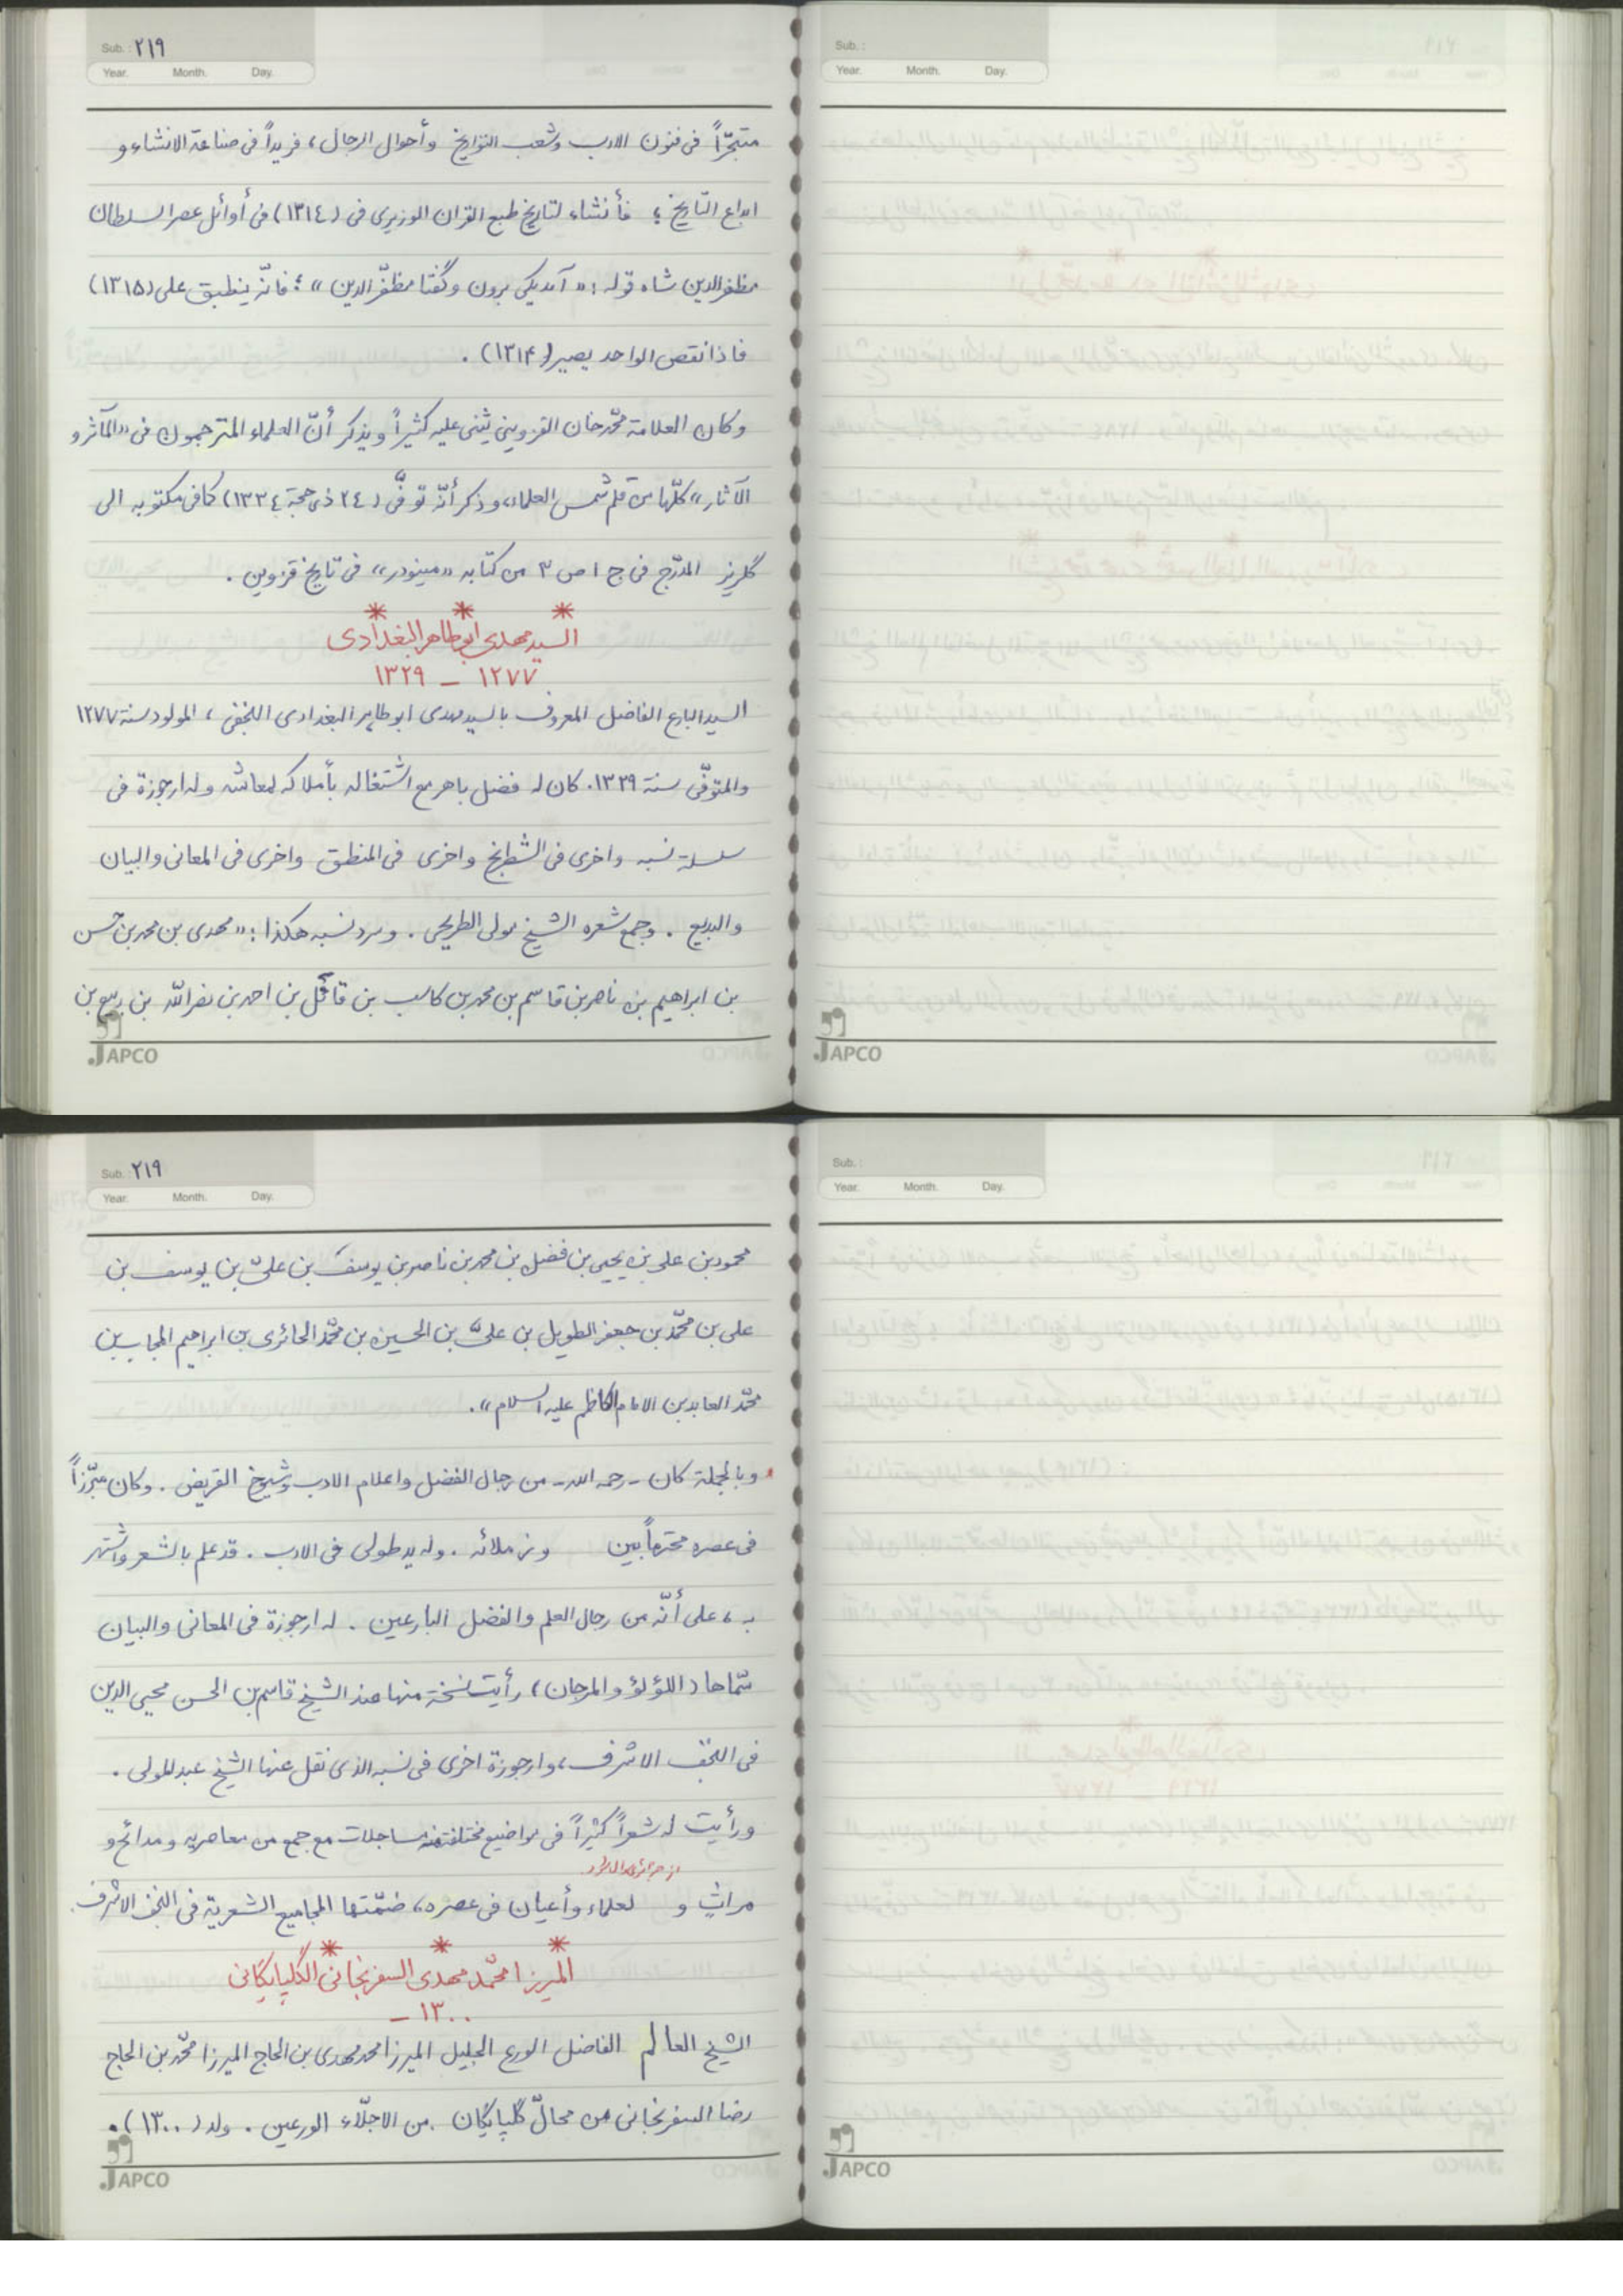 Sub. : ٢١٩
Year. Month. Day.
متبحّراً فى فنون الادب وشعب التواريخ وأحوال الرجال، فريداً فى صناعة الانشاء و
ابداع التّاريخ؛ فأنشاء لتاريخ طبع القران الوزيرى فى (١٣١٤) فى أوائل عصر السلطان
مظفرالدين شاه قوله: «آمد يكى برون وگفتا مظفّرالدين»؛ فانّه ينطبق على (١٣١٥)
فاذا نقص الواحد يصير (١٣١۴) .
وكان العلامة محّمدخان القزويني يثنى عليه كثيراً ويذكر أنّ العلماء المترجمون فى «المآثر و
الآثار» كلّها من قلم شمس العلماء، وذكر أنّه توفّى (٢٤ ذى حجة ١٣٣٤) كما فى مكتوبه الى
گلريز المدرّج فى ج ١ ص ٣ من كتابه «مينودر» فى تاريخ قزوين .
* * *
السيد مهدى ابوطاهر البغدادى
١٢٧٧ – ١٣٢٩
السيد البارع الفاضل المعروف بالسيد مهدى ابوطاهر البغدادى النجفى، المولود سنة ١٢٧٧
والمتوفّى سنة ١٣٢٩. كان له فضل باهر مع اشتغاله بأملاكه لمعاشه وله ارجوزة فى
سلسلة نسبه واخرى فى الشطرنج واخرى فى المنطق واخرى فى المعانى والبيان
والبديع . وجمع شعره الشيخ مولى الطريحى . وسرد نسبه هكذا: «مهدى بن محمد بن حسن
بن ابراهيم بن ناصر بن قاسم بن محمد بن كاسب بن قاتل بن احمد بن نصرالله بن ربيع بن
JAPCO
Sub. :
Year. Month. Day.
JAPCO
Sub. : ٢١٩
Year. Month. Day.
محمود بن على بن يحيى بن فضل بن محمد بن ناصر بن يوسف بن علىّ بن يوسف بن
على بن محّمد بن جعفر الطويل بن علىّ بن الحسين بن محّمد الحائرى بن ابراهيم المجاب بن
محّمد العابد بن الامام الكاظم عليه السلام».
وبالجملة كان - رحمه الله - من رجال الفضل واعلام الادب وشيوخ القريض . وكان مبّرزاً
فى عصره محترماً بين وزملائه . وله يد طولى فى الادب . قد علم بالشعر واشتهر
به، على أنّه من رجال العلم والفضل البارعين . له ارجوزة فى المعانى والبيان
سّماها (اللؤلؤ والمرجان) رأيت نسخة منها عند الشيخ قاسم بن الحسن محيى الدين
فى النجف الاشرف، وارجوزة اخرى فى نسبه الذى نقل عنها الشيخ عبدالمولى .
ورأيت له شعراً كثيراً فى مواضيع مختلفة منه مساجلات مع جمع من معاصريه ومدائح و
مراثٍ و لعلماء وأعيان فى عصره، ضمّتها المجاميع الشعرية فى النجف الاشرف.
* * *
الميرزا محّمد مهدى السفرنجانى الگلپايگانى
١٣٠٠ –
الشيخ العالم الفاضل الورع الجليل الميرزا محمد مهدى بن الحاج الميرزا محّمد بن الحاج
رضا السفرنجانى من محالّ گلپايگان من الاجلّاء الورعين . ولد (١٣٠٠) .
JAPCO
Sub. :
Year. Month. Day.
JAPCO